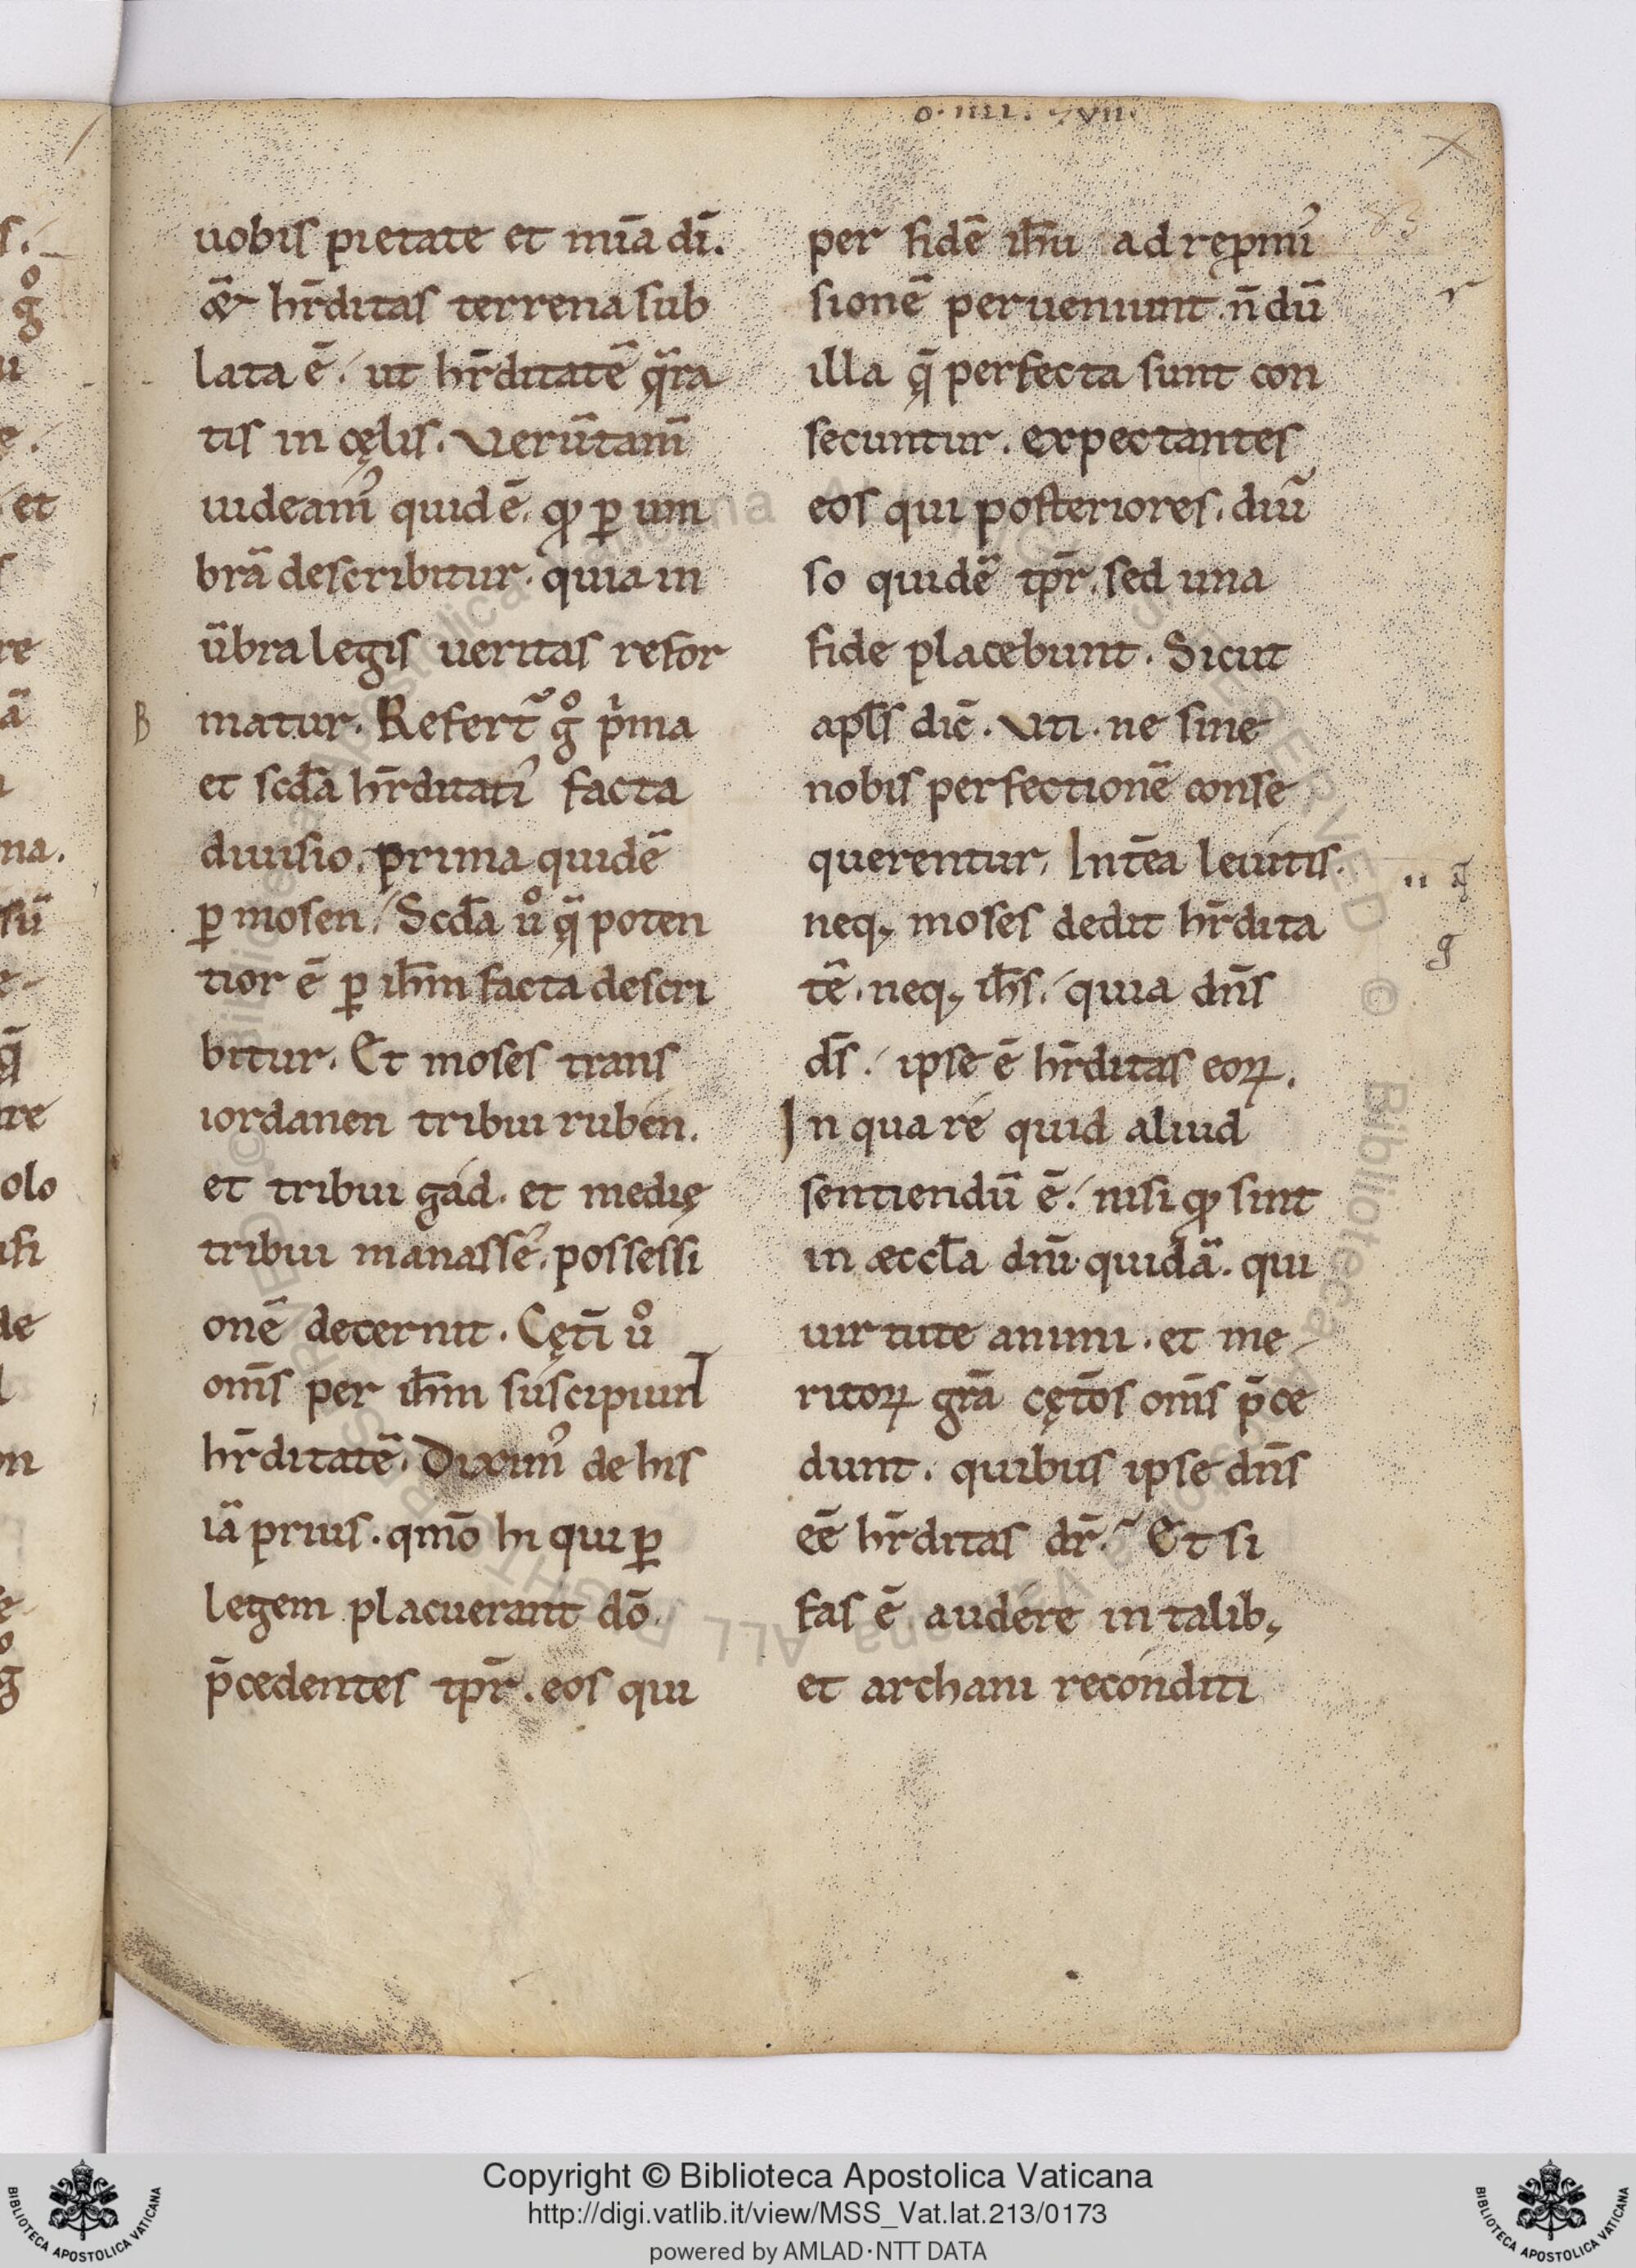 o. IIII. XVII
uobis pietate et mīa dī.
ǣ hr̄ditas terrena sub
lata ē. ut hr̄ditatē q̄ra
tis in cęlis. Uerūtam̄
uideam᾽ quidē. qđ ꝑ um
brā describitur. quia in
ūbra legis ueritas refor
B
matur. Refert̄ gͦ pͥma
et scđa hr̄ditati᾽ facta
diuisio. prima quidē
ꝑ mosen. Scđa uͦ q̄ poten
tior ē ꝑ ih̄m facta descri
bitur. Et moses trans
iordanen tribui ruben.
et tribui gad. et medię
tribui manasse᾽. possessi
onē decernit. Cęt̄i uͦ
om̄s per ih̄m suscipiunt
hr̄ditatē. Dixim᾽ de his
iā prius. qm̄o hi qui ꝑ
legem placuerant dō.
p̄cedentes tp̄r. eos qui
83
per fidē ih̄u ad reꝓmi᾽
sionē perueniunt. n̄dū
r
illa q̄ perfecta sunt con
secuntur. expectantes
eos qui posteriores. diū
so quidē tp̄r. sed una
fide placebunt. Sicut
apl̄s dic̄. Uti. ne sine
nobis perfectionē conse
querentur. Int̄ea leuitis.
neq; moses dedit hr̄dita
tē. neq; ih̄s. quia dn̄s
d̄s. ipse ē hr̄ditas eoꝝ.
In qua re quid aliud
sentiendū ē. nisi qđ sint
in æccl̄a dn̄i quidā. qui
uirtute animi. et me
ritoꝝ gr̄a cęt̄os om̄s p̄ce
dunt. quibus ipse dn̄s
eē hr̄ditas dr̄. Et si
fas ē audere in talib;
et archani reconditi
Copyright © Biblioteca Apostolica Vaticana
http://digi.vatlib.it/view/MSS_Vat.lat.213/0173
powered by AMLAD·NTT DATA
BIBLIOTECA APOSTOLICA VATICANA
BIBLIOTECA APOSTOLICA VATICANA